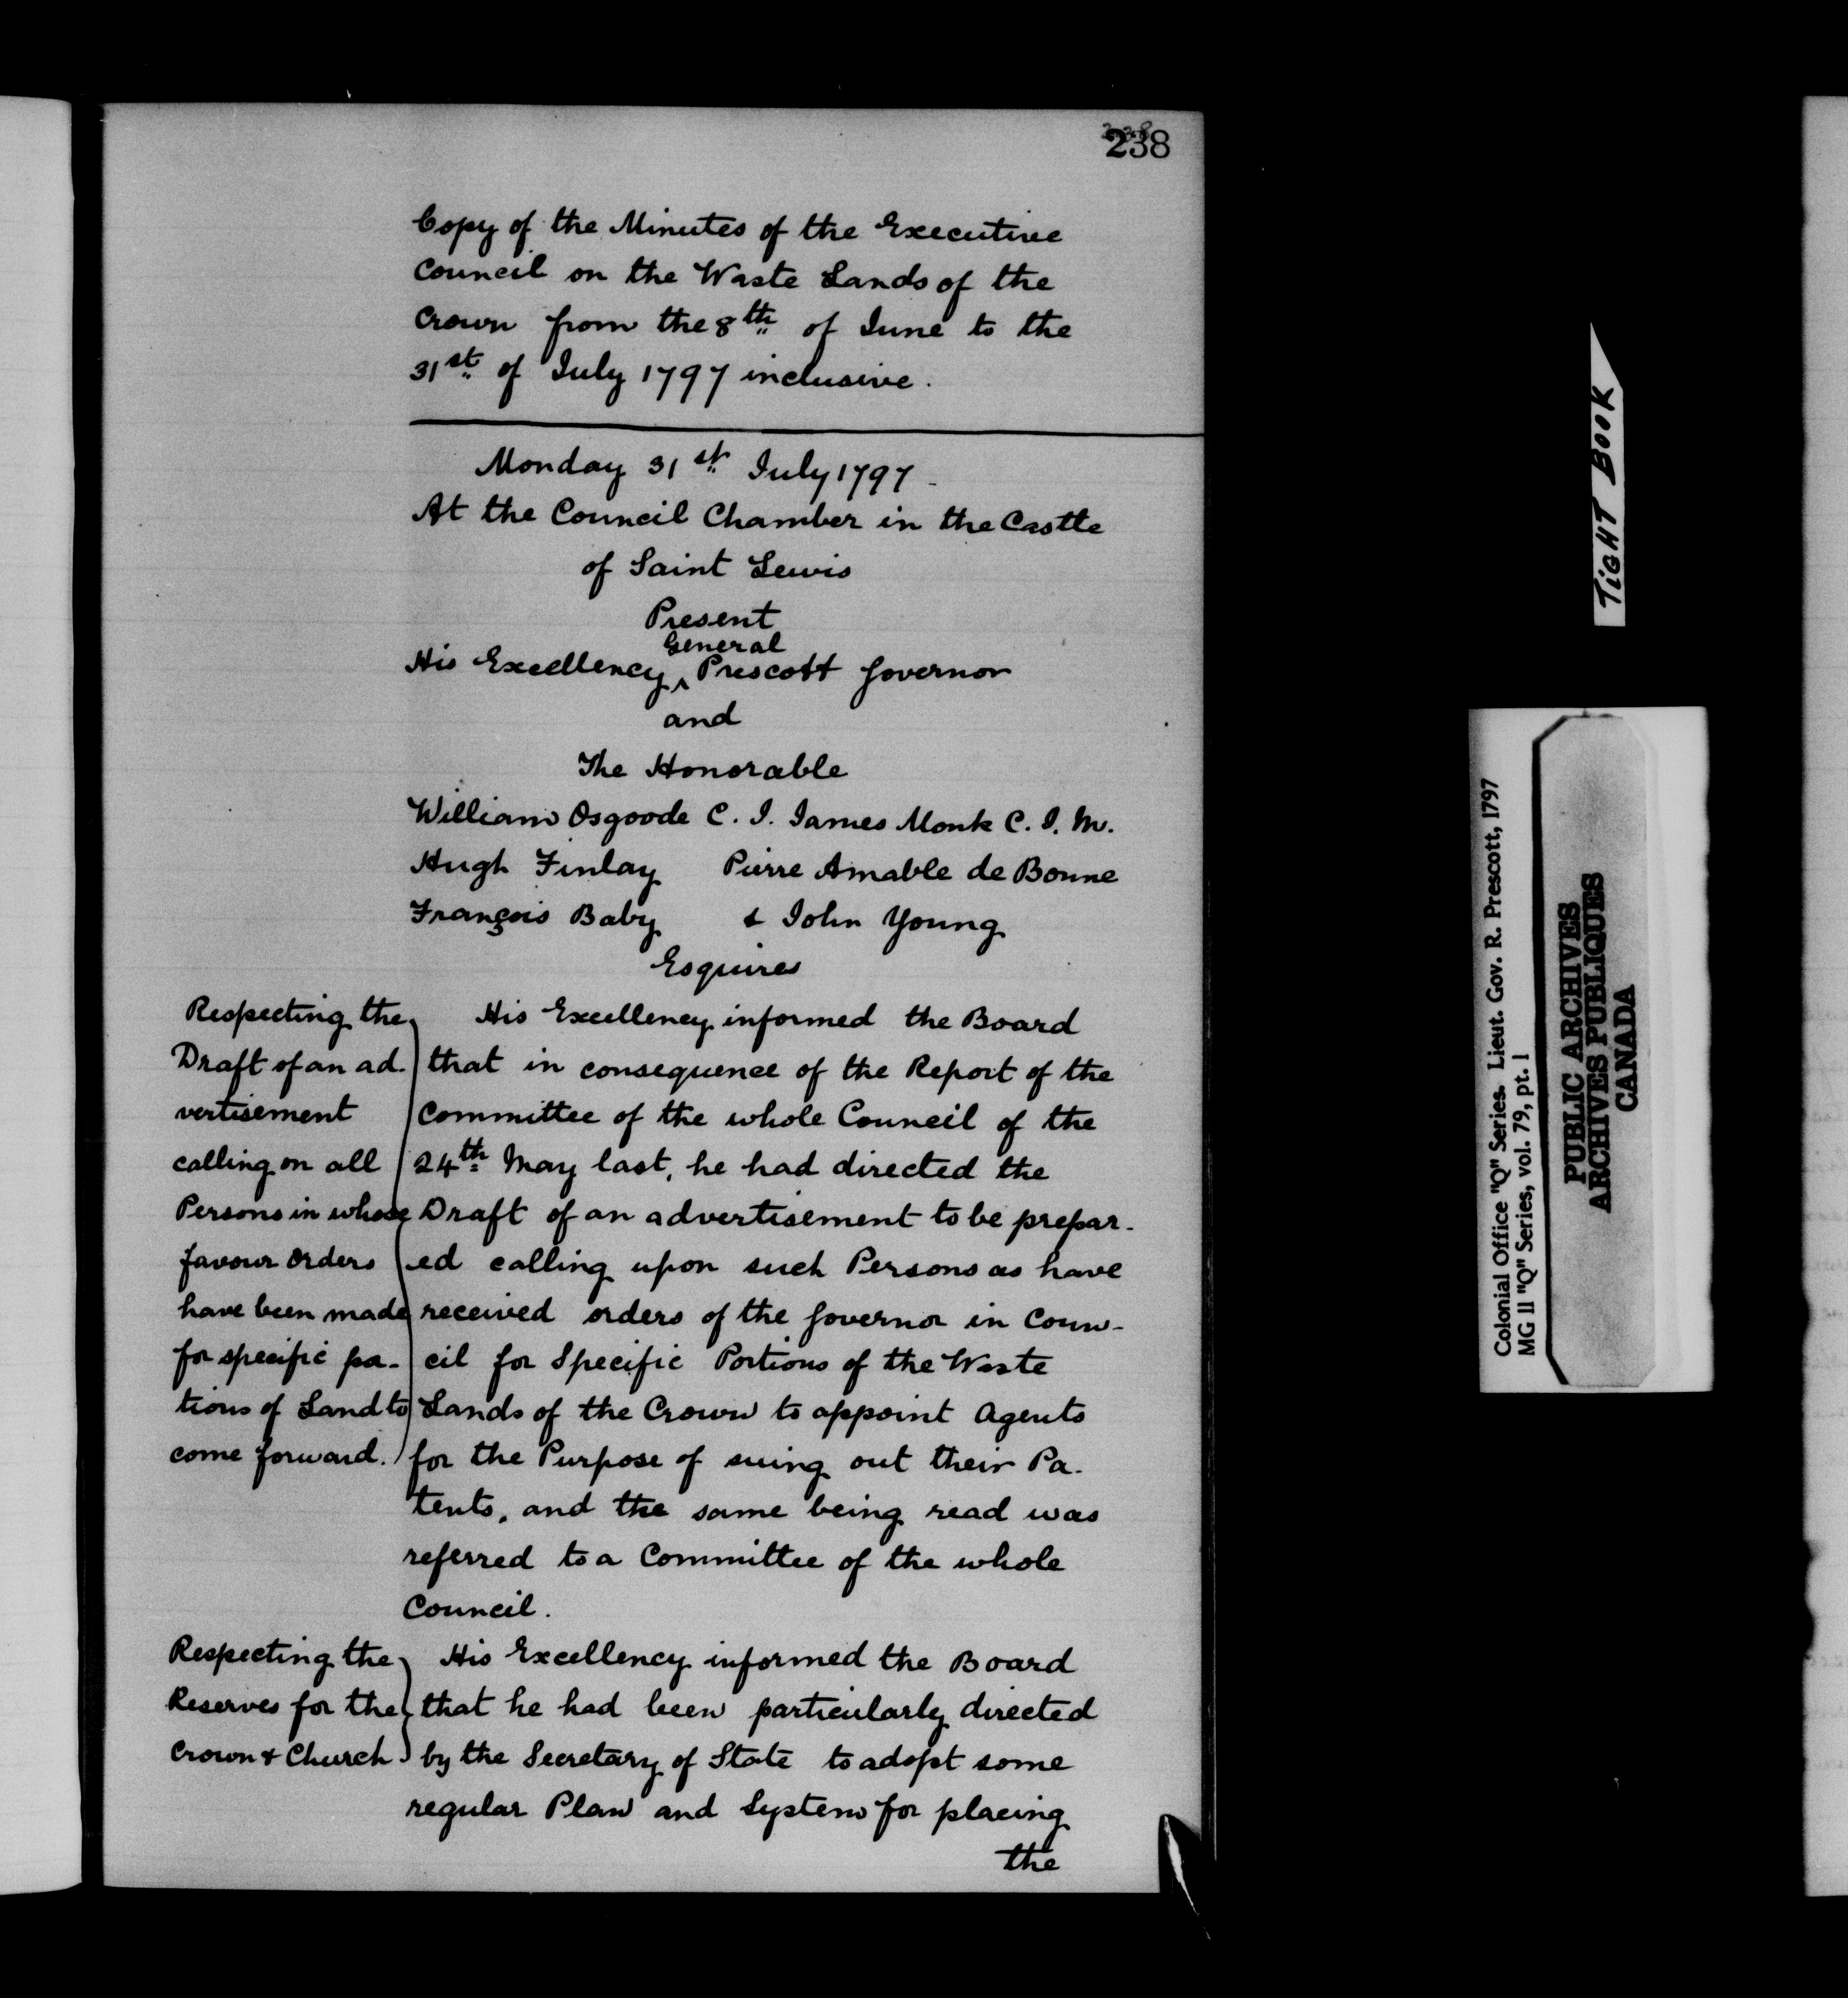 238
Copy of the Minutes of the Executive
Council on the Waste Lands of the
Crown from the 8th of June to the
31st of July 1797 inclusive.
Monday 31st July 1797 -
At the Council Chamber in the Castle
of Saint Lewis
Present
General
His Excellency ^ Prescott Governor
and
The Honorable
William Osgoode C. J. James Monk C. J. M.
Hugh Finlay Pierre Amable de Bonne
François Baby & John Young
Esquires
Respecting the
Draft of an ad-
vertisement
calling on all
Persons in whose
favour Orders
have been made
for specific por-
tions of Land to
come forward.
His Excellency informed the Board
that in consequence of the Report of the
Committee of the whole Council of the
24th May last, he had directed the
Draft of an advertisement to be prepar-
ed calling upon such Persons as have
received orders of the Governor in Coun-
cil for Specific Portions of the Waste
Lands of the Crown to appoint Agents
for the Purpose of suing out their Pa-
tents, and the same being read was
referred to a Committee of the whole
Council.
Respecting the
Reserves for the
Crown & Church
His Excellency informed the Board
that he had been particularly directed
by the Secretary of State to adopt some
regular Plan and System for placing
the
TIGHT BOOK
Colonial Office "Q" Series. Lieut. Gov. R. Prescott, 1797
MG 11 "Q" Series, vol. 79, pt. 1
PUBLIC ARCHIVES
ARCHIVES PUBLIQUES
CANADA